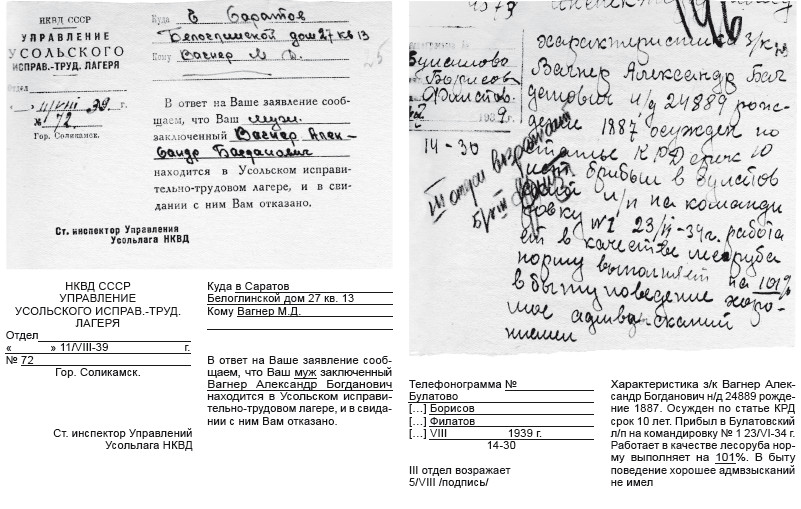 НКВД СССР
УПРАВЛЕНИЕ
УСОЛЬСКОГО
ИСПРАВ.-ТРУД. ЛАГЕРЯ
Отдел
« » 11/VIII 39 г.
№ 72.
Гор. Соликамск.
Куда в Саратов
Белоглинской дом 27 кв 13
Кому Вагнер М. Д.
В ответ на Ваше заявление сооб-
щаем, что Ваш муж.
заключенный Вагнер Алек-
сандр Богданович
находится в Усольском исправи-
тельно-трудовом лагере, и в сви-
дании с ним Вам отказано.
Ст. инспектор Управления
Усольлага НКВД
Булатово
Борисов
Филатов
1939
14-30
III отдел возражает
Характеристика з/к
Вагнер Александр Бог
данович н/д 24889 рож-
дение 1887 осужден по
статье КРД срок 10
лет. прибыл в Булатов
ский л/п на команди
ровку №1 23/VI-34 г. работа
ет в качестве лесоруба
норму выполняет на 101%
в быту поведение хоро-
шое адмвзысканий
не имел
НКВД СССР
УПРАВЛЕНИЕ
УСОЛЬСКОГО ИСПРАВ.-ТРУД.
ЛАГЕРЯ
Отдел
« » 11/VIII-39 г.
№ 72
Гор. Соликамск.
Ст. инспектор Управлений
Усольлага НКВД
Куда в Саратов
Белоглинской дом 27 кв. 13
Кому Вагнер М.Д.
В ответ на Ваше заявление сооб-
щаем, что Ваш муж заключенный
Вагнер Александр Богданович
находится в Усольском исправи-
тельно-трудовом лагере, и в свида-
нии с ним Вам отказано.
Телефонограмма №
Булатово
[...] Борисов
[...] Филатов
[...] VIII 1939 г.
14-30
III отдел возражает
5/VIII /подпись/
Характеристика з/к Вагнер Алек-
сандр Богданович н/д 24889 рожде-
ние 1887. Осужден по статье КРД
срок 10 лет. Прибыл в Булатовский
л/п на командировку № 1 23/VI-34 г.
Работает в качестве лесоруба нор-
му выполняет на 101%. В быту
поведение хорошее адмвзысканий
не имел